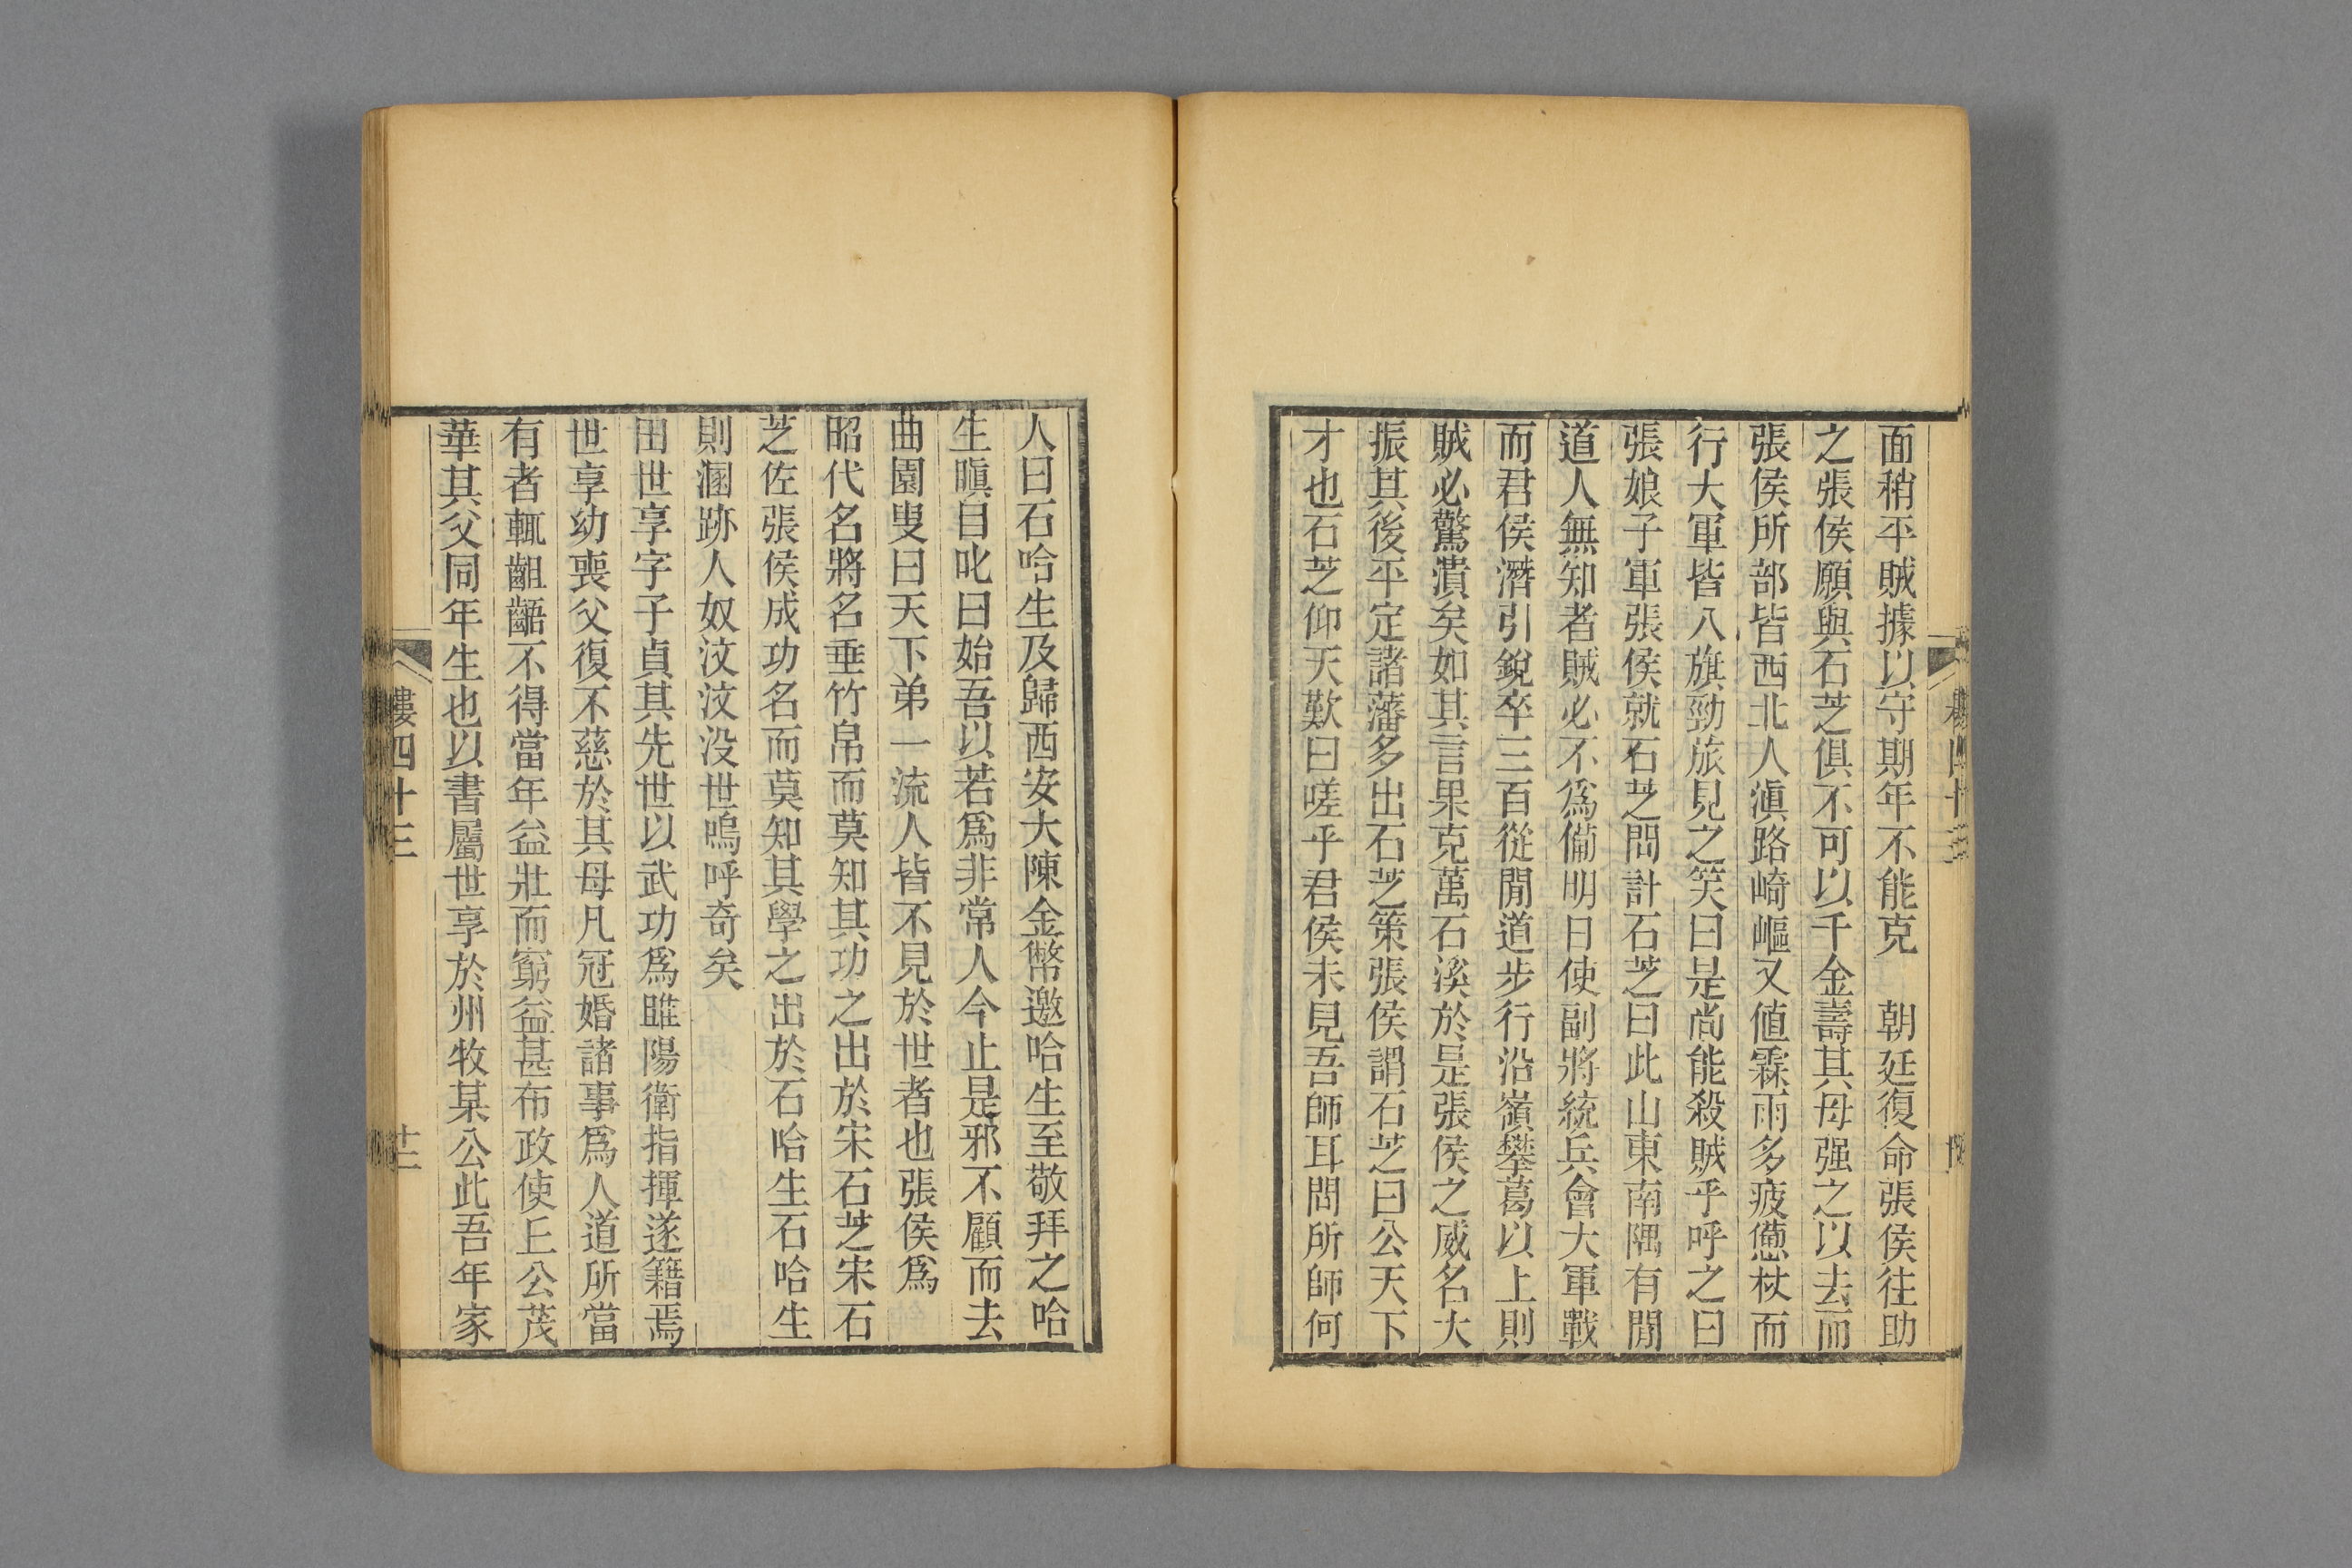 面稍平賊據以守期年不能克　朝廷復命張侯往助
之張侯願與石芝俱不可以千金壽其母强之以去而
張侯所部皆西北人滇路崎嶇又值霖雨多疲憊杖而
行大軍皆八旗勁旅見之笑曰是尚能殺賊乎呼之曰
張娘子軍張侯就石芝問計石芝曰此山東南隅有閒
道人無知者賊必不爲備明日使副將統兵會大軍戰
而君侯潛引銳卒三百從閒道步行沿嶺攀葛以上則
賊必驚潰矣如其言果克萬石溪於是張侯之威名大
振其後平定諸藩多出石芝策張侯謂石芝曰公天下
才也石芝仰天歎曰嗟乎君侯未見吾師耳問所師何
人曰石哈生及歸西安大陳金幣邀哈生至敬拜之哈
生瞋目叱曰始吾以若爲非常人今止是邪不顧而去
曲園叟曰天下弟一流人皆不見於世者也張侯爲
昭代名將名垂竹帛而莫知其功之出於宋石芝宋石
芝佐張侯成功名而莫知其學之出於石哈生石哈生
則溷跡人奴汶汶没世嗚呼奇矣
田世享字子貞其先世以武功爲睢陽衛指揮遂籍焉
世享幼喪父復不慈於其母凡冠婚諸事爲人道所當
有者輒齟齬不得當年益壯而窮益甚布政使上公茂
華其父同年生也以書屬世享於州牧某公此吾年家
樓四十三